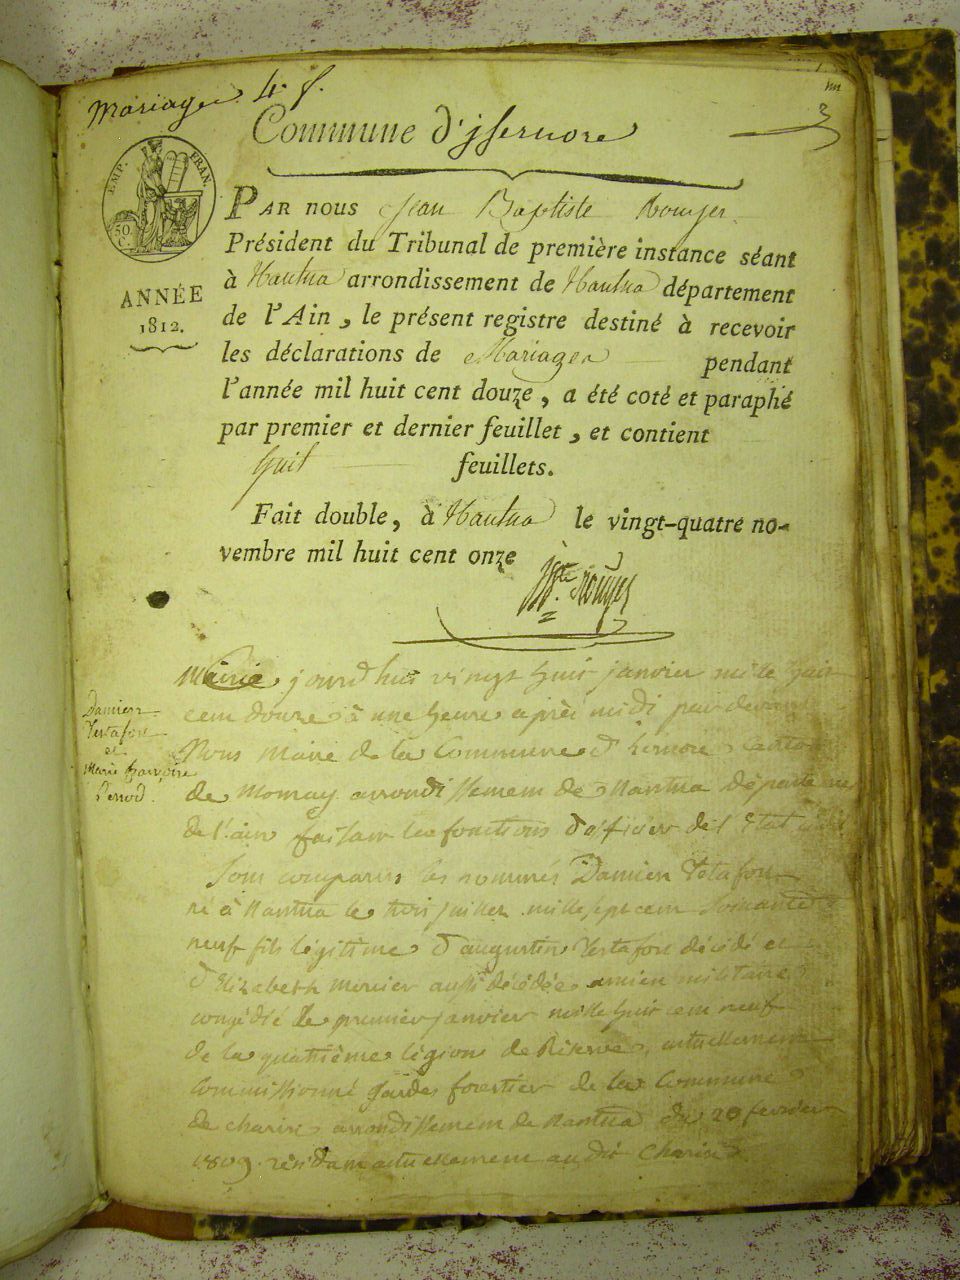 Mariages 4 f.
Commune d'jsernore
EMP. FRAN.
50. C.
ANNÉE
1812.
PAR NOUS Jean Baptiste Rouyer
Président du Tribunal de première instance séant
à Nantua arrondissement de Nantua département
de l'Ain, le présent registre destiné à recevoir
les déclarations de Mariages pendant
l'année mil huit cent douze, a été coté et paraphé
par premier et dernier feuillet, et contient
huit feuillets.
Fait double, à Nantua le vingt-quatre no-
vembre mil huit cent onze
Bte Rouyer
Damien
et
Marie françoise
Perrod.
jourd'hui vingt huit janvier mille huit
cent douze à une heure après midi par devant
Nous maire de la Commune d'hernore canton
de Mornay arrondissement de Nantua département
de l'ain faisant les fonctions d'officier de l'Etat civil
Sont comparus les nommés Damien
né à Nantua le trois juillet mille sept cent soixante
neuf fils légitime d'augustin décédé et
d'Elizabeth mercier aussi décédée ancien militaire
congédié le premier janvier mille huit cent neuf
de la quatrième légion de Réserve, actuellement
Commissionné garde forestier de la Commune
de charix arrondissement de Nantua du 20 fevrier
1809 résidant actuellement audit Charix